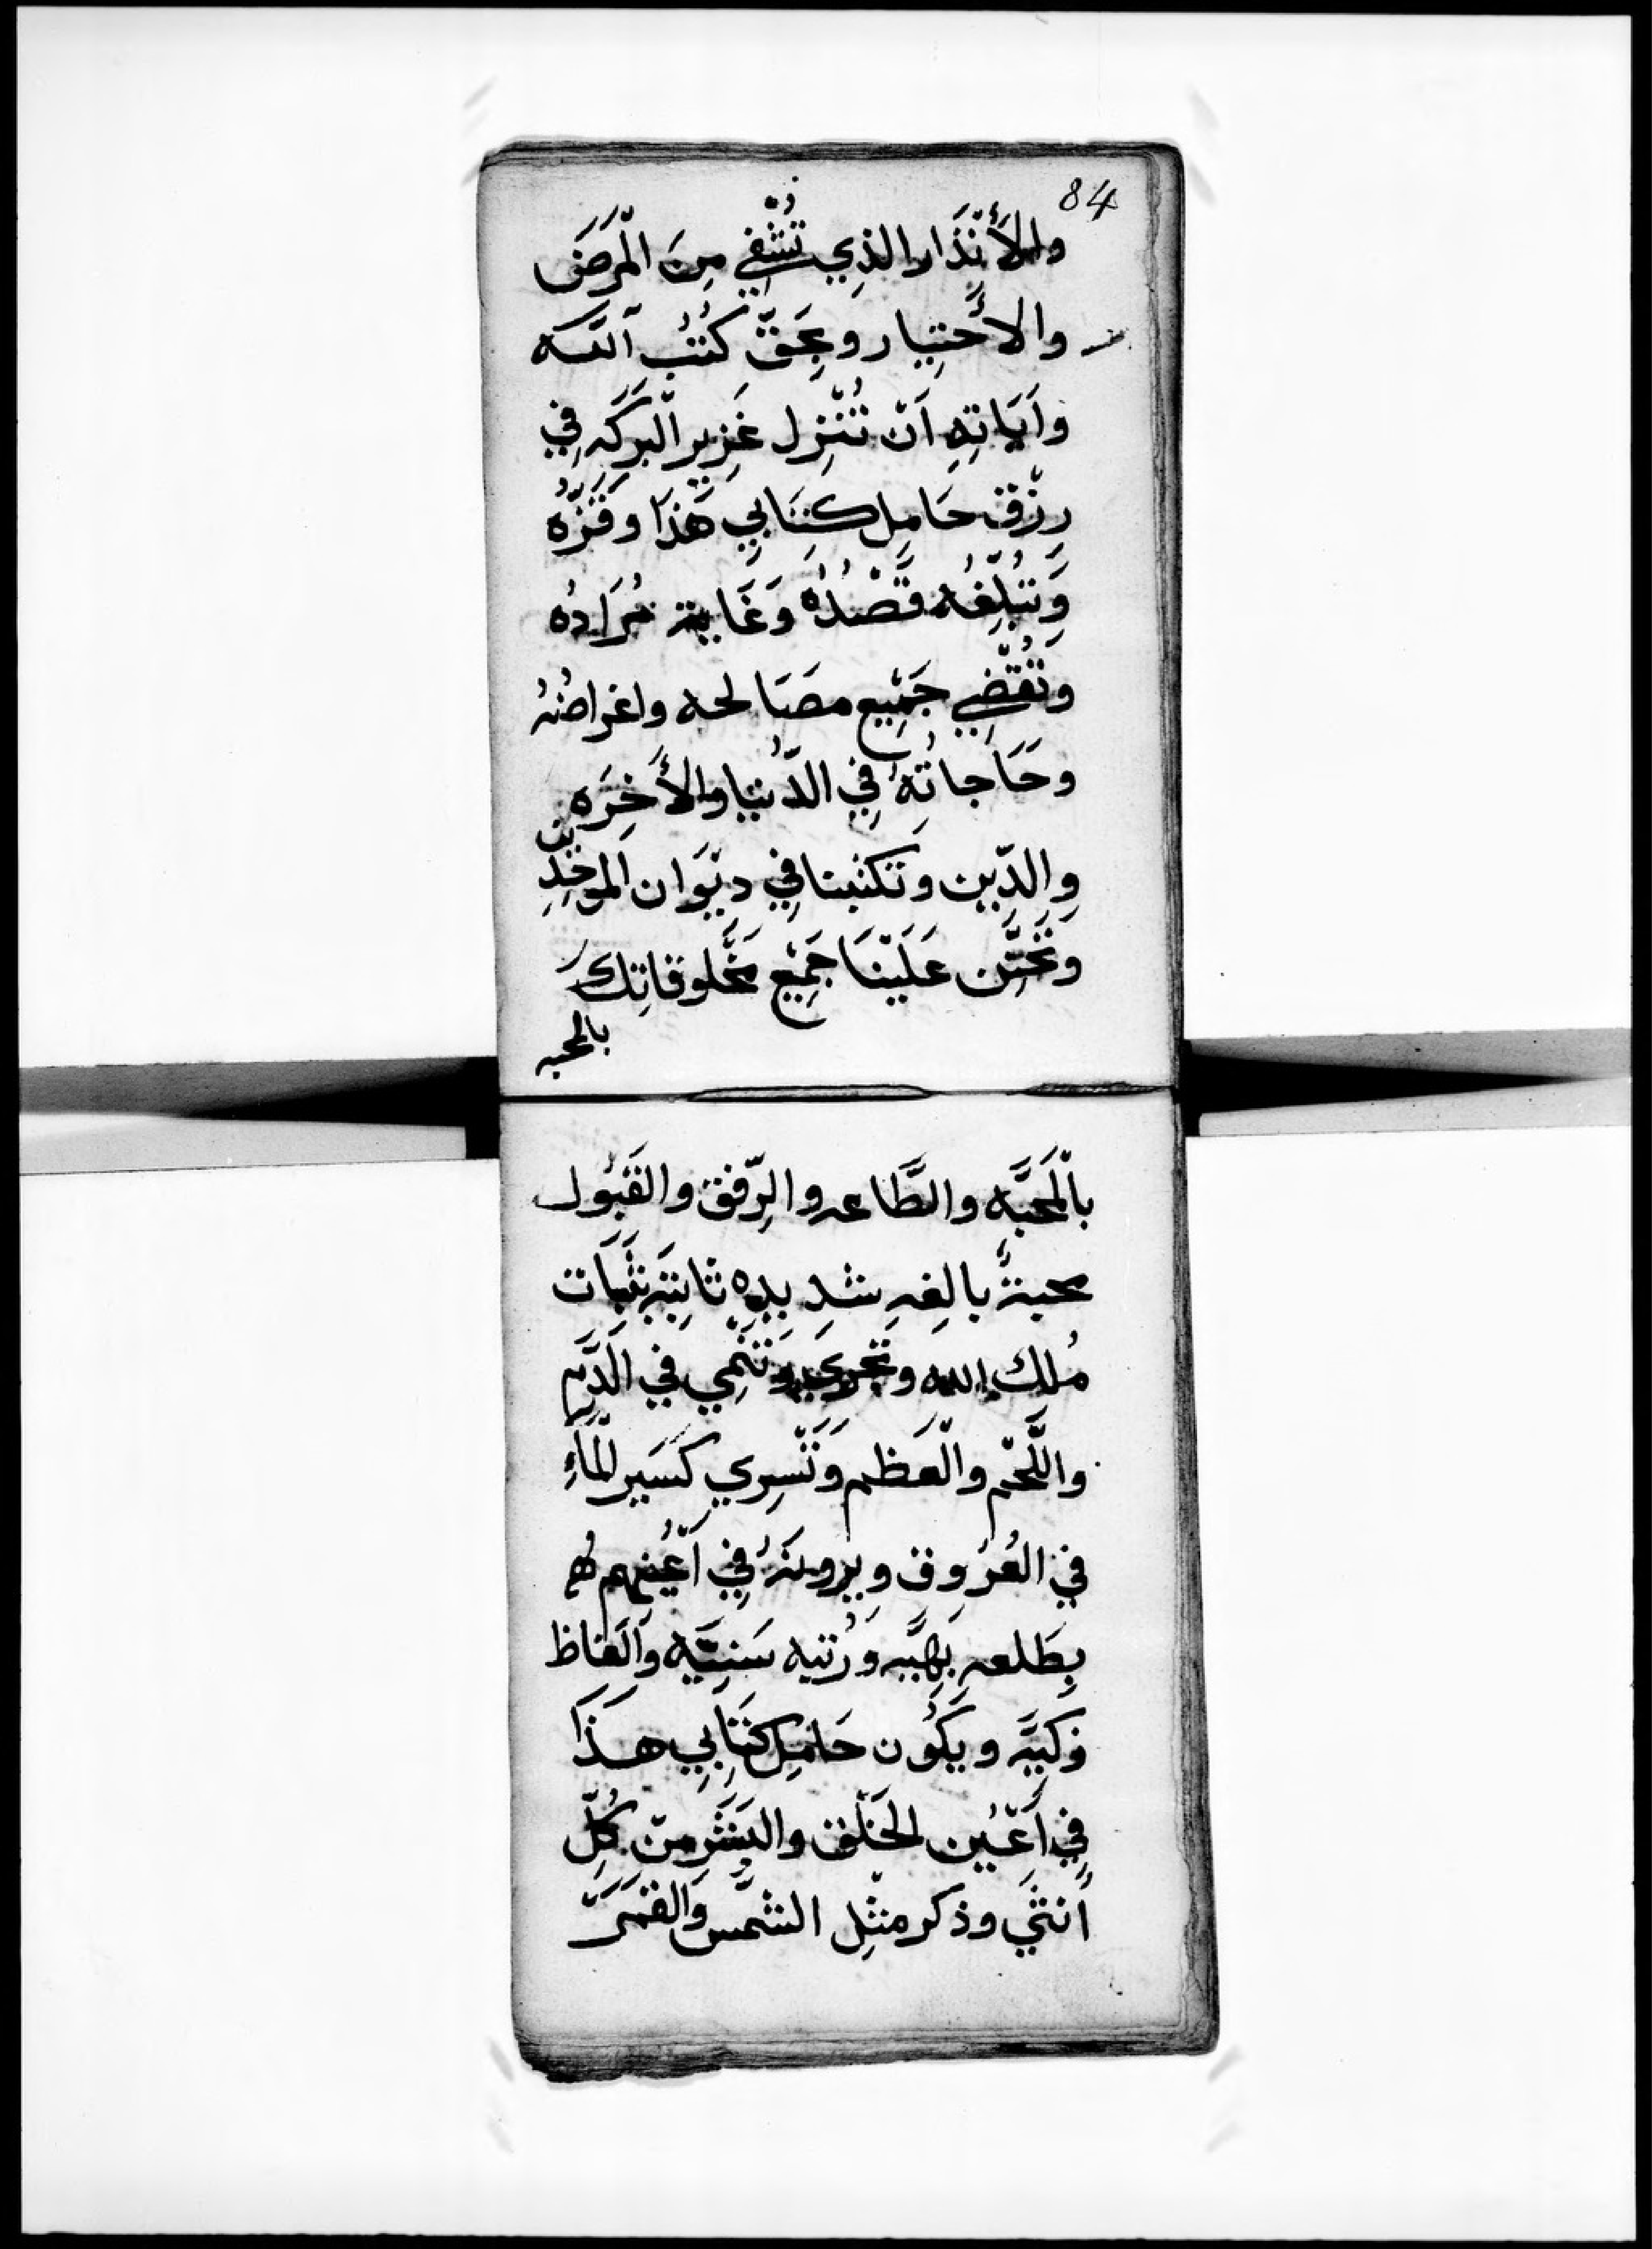 84
والأَنْذَار الذِي تُشْفِي مِنَ الْمَرَضَ
والاَّخْتِيار وبِحَقّ كُتُبِ اَللَّه
وَاَيَاتِهِ اَنْ تُنْزِل غَزِير الْبَرَكَه فِي
رِزْق حَامِل كِتَابِي هَذَا وَقَرّه
وَتُبَلِّغُه قَصْدُهُ وَغَاية مُرَادُه
وَتُقْضِي جَمِيْع مصَالحه واغراضُهُ
وحَاجاتُهُ فِي الدُّنيا والأَخِرَه
وِالدِّين وَتَكتُبنا فِي ديْوَان الموَحِدِين
وَتُحَنّن عَلَيْنَا جَمِيْع مَخْلوقاتِكَ
بالمحبه
بالْمَحَبَّه والطَّاعه والرِّفق والقَبُول
محبةً بالِغهِ شدِيدِهِ ثابِتَه بثَبَات
مُلك الله وتجري وَتَنْمِي في الدَّم
واللَّحْم والْعَظم وَتَسِري كَسَير الْمَاءِ
في العُرُوق وِيروْنَهُ فِي اَعْيُنهم لهم
بِطَلعه بَهِيَّه وَرُتبه سَنِيَّه وَالَفاظ
زكيَّه ويَكُون حَامِل كِتَابِي هَذَا
فِي اَعْيُن الخَلْق والبَشَر مِنْ كُلِّ
اُنثَي وذكر مثْل الشَّمْس وَالقَمَرَ